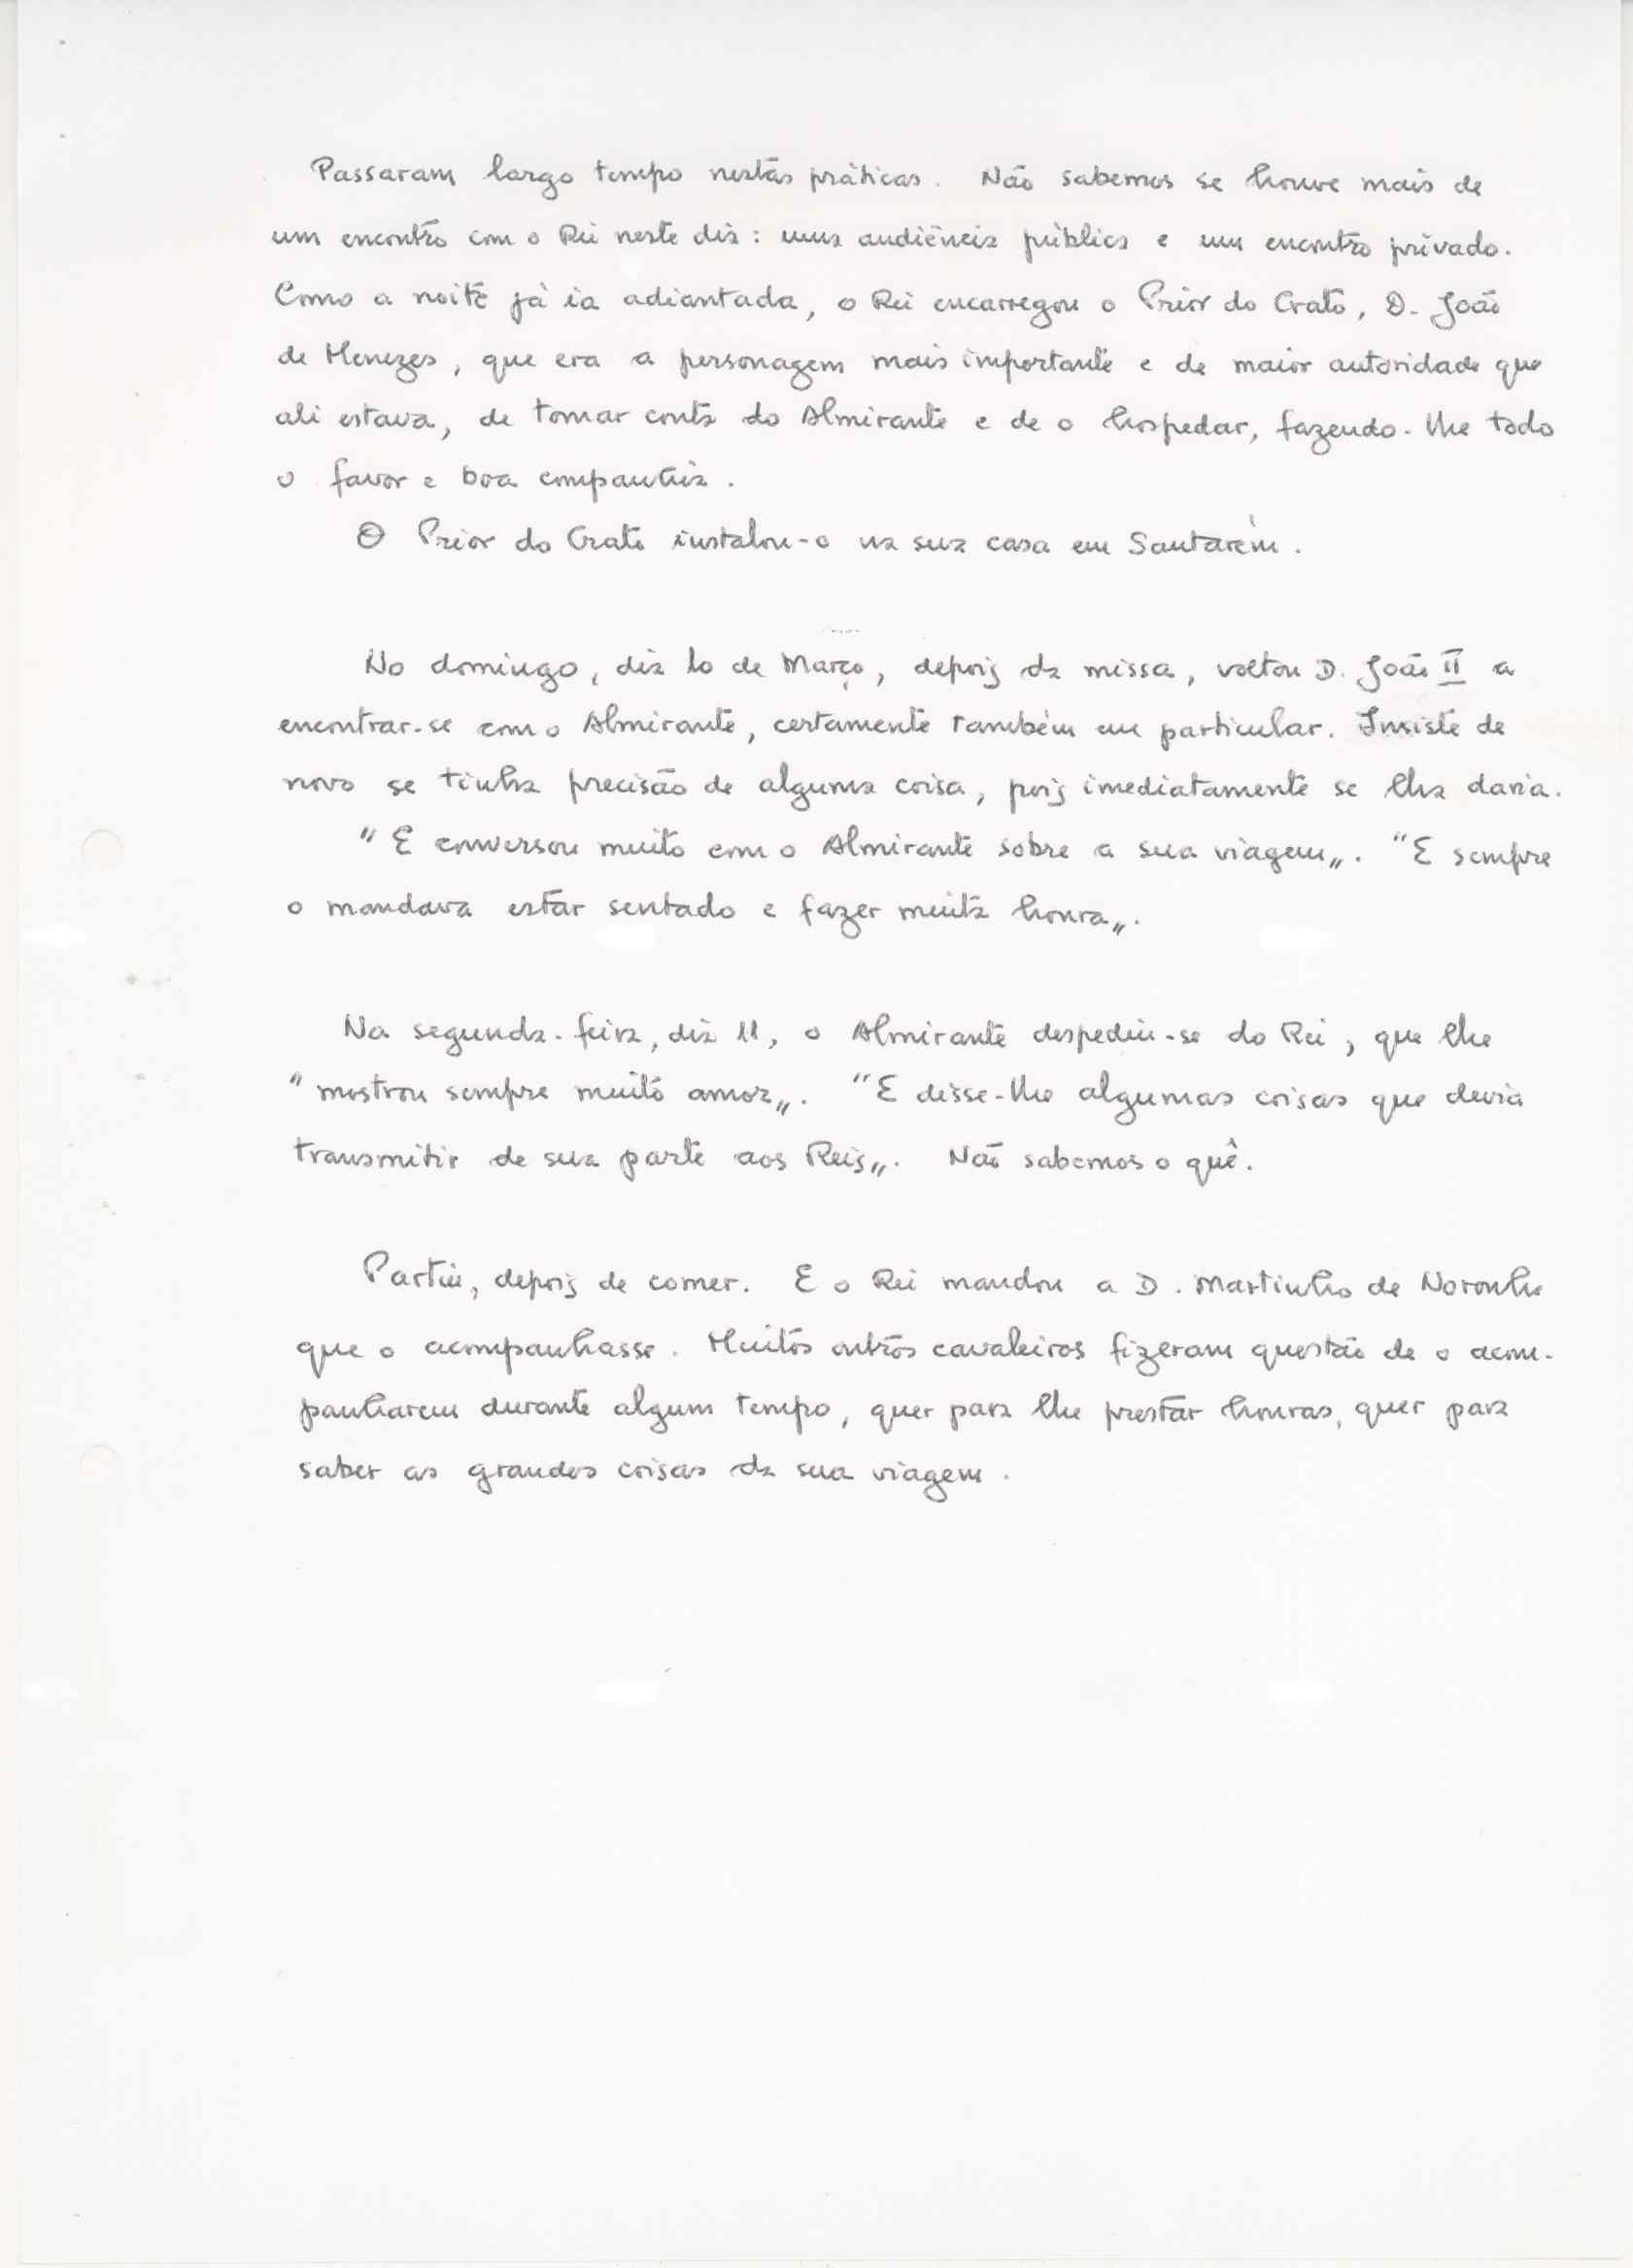 Passaram largo tempo nestas práticas. Não sabemos se houve mais de
um encontro com o Rei neste dia: uma audiência pública e um encontro privado.
Como a noite já ia adiantada, o Rei encarregou o Prior do Crato, D. João
de Menezes, que era a personagem mais importante e de maior autoridade que
ali estava, de tomar conta do Almirante e de o hospedar, fazendo-lhe todo
o favor e boa companhia.
O Prior do Crato instalou-o na sua casa em Santarém.
No domingo, dia 10 de Março, depois da missa, voltou D. João II a
encontrar-se com o Almirante, certamente também em particular. Insiste de
novo se tinha precisão de alguma coisa, pois imediatamente se lha daria.
"E conversou muito com o Almirante sobre a sua viagem„. "E sempre
o mandava estar sentado e fazer muita honra„.
Na segunda-feira, dia 11, o Almirante despediu-se do Rei, que lhe
"mostrou sempre muito amor„. "E disse-lhe algumas coisas que devia
transmitir de sua parte aos Reis„. Não sabemos o quê.
Partiu, depois de comer. E o Rei mandou a D. Martinho de Noronha
que o acompanhasse. Muitos outros cavaleiros fizeram questão de o acom-
panharem durante algum tempo, quer para lhe prestar honras, quer para
saber as grandes coisas da sua viagem.